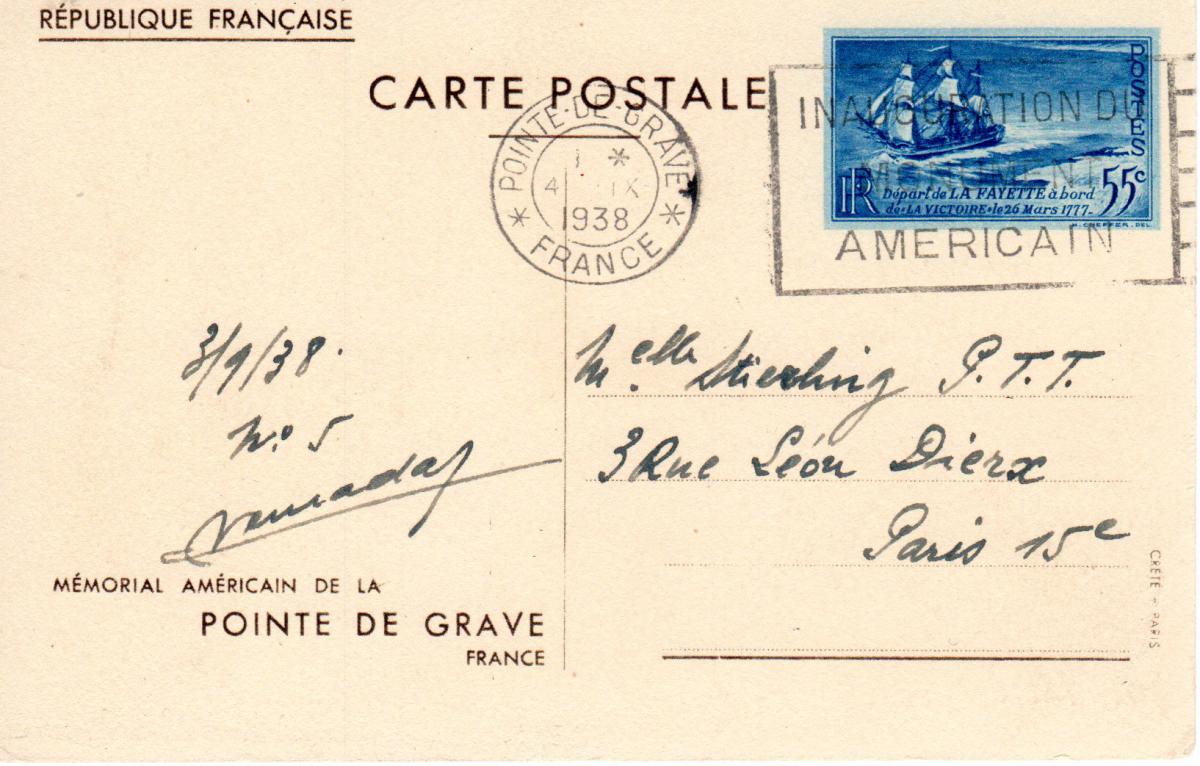 RÉPUBLIQUE FRANÇAISE
CARTE POSTALE
POINTE-DE-GRAVE
1 *
4 IX
1938
* FRANCE *
INAUGURATION DU
MONUMENT
AMERICAIN
POSTES
RF
Départ de LA FAYETTE à bord
de "LA VICTOIRE" le 26 Mars 1777-
55c
H. CHEFFER. DEL
3/9/38.
No. 5
Melle Stierling P.T.T.
3 Rue Léon Dierx
Paris 15e
MÉMORIAL AMÉRICAIN DE LA
POINTE DE GRAVE
FRANCE
CRÉTÉ - PARIS